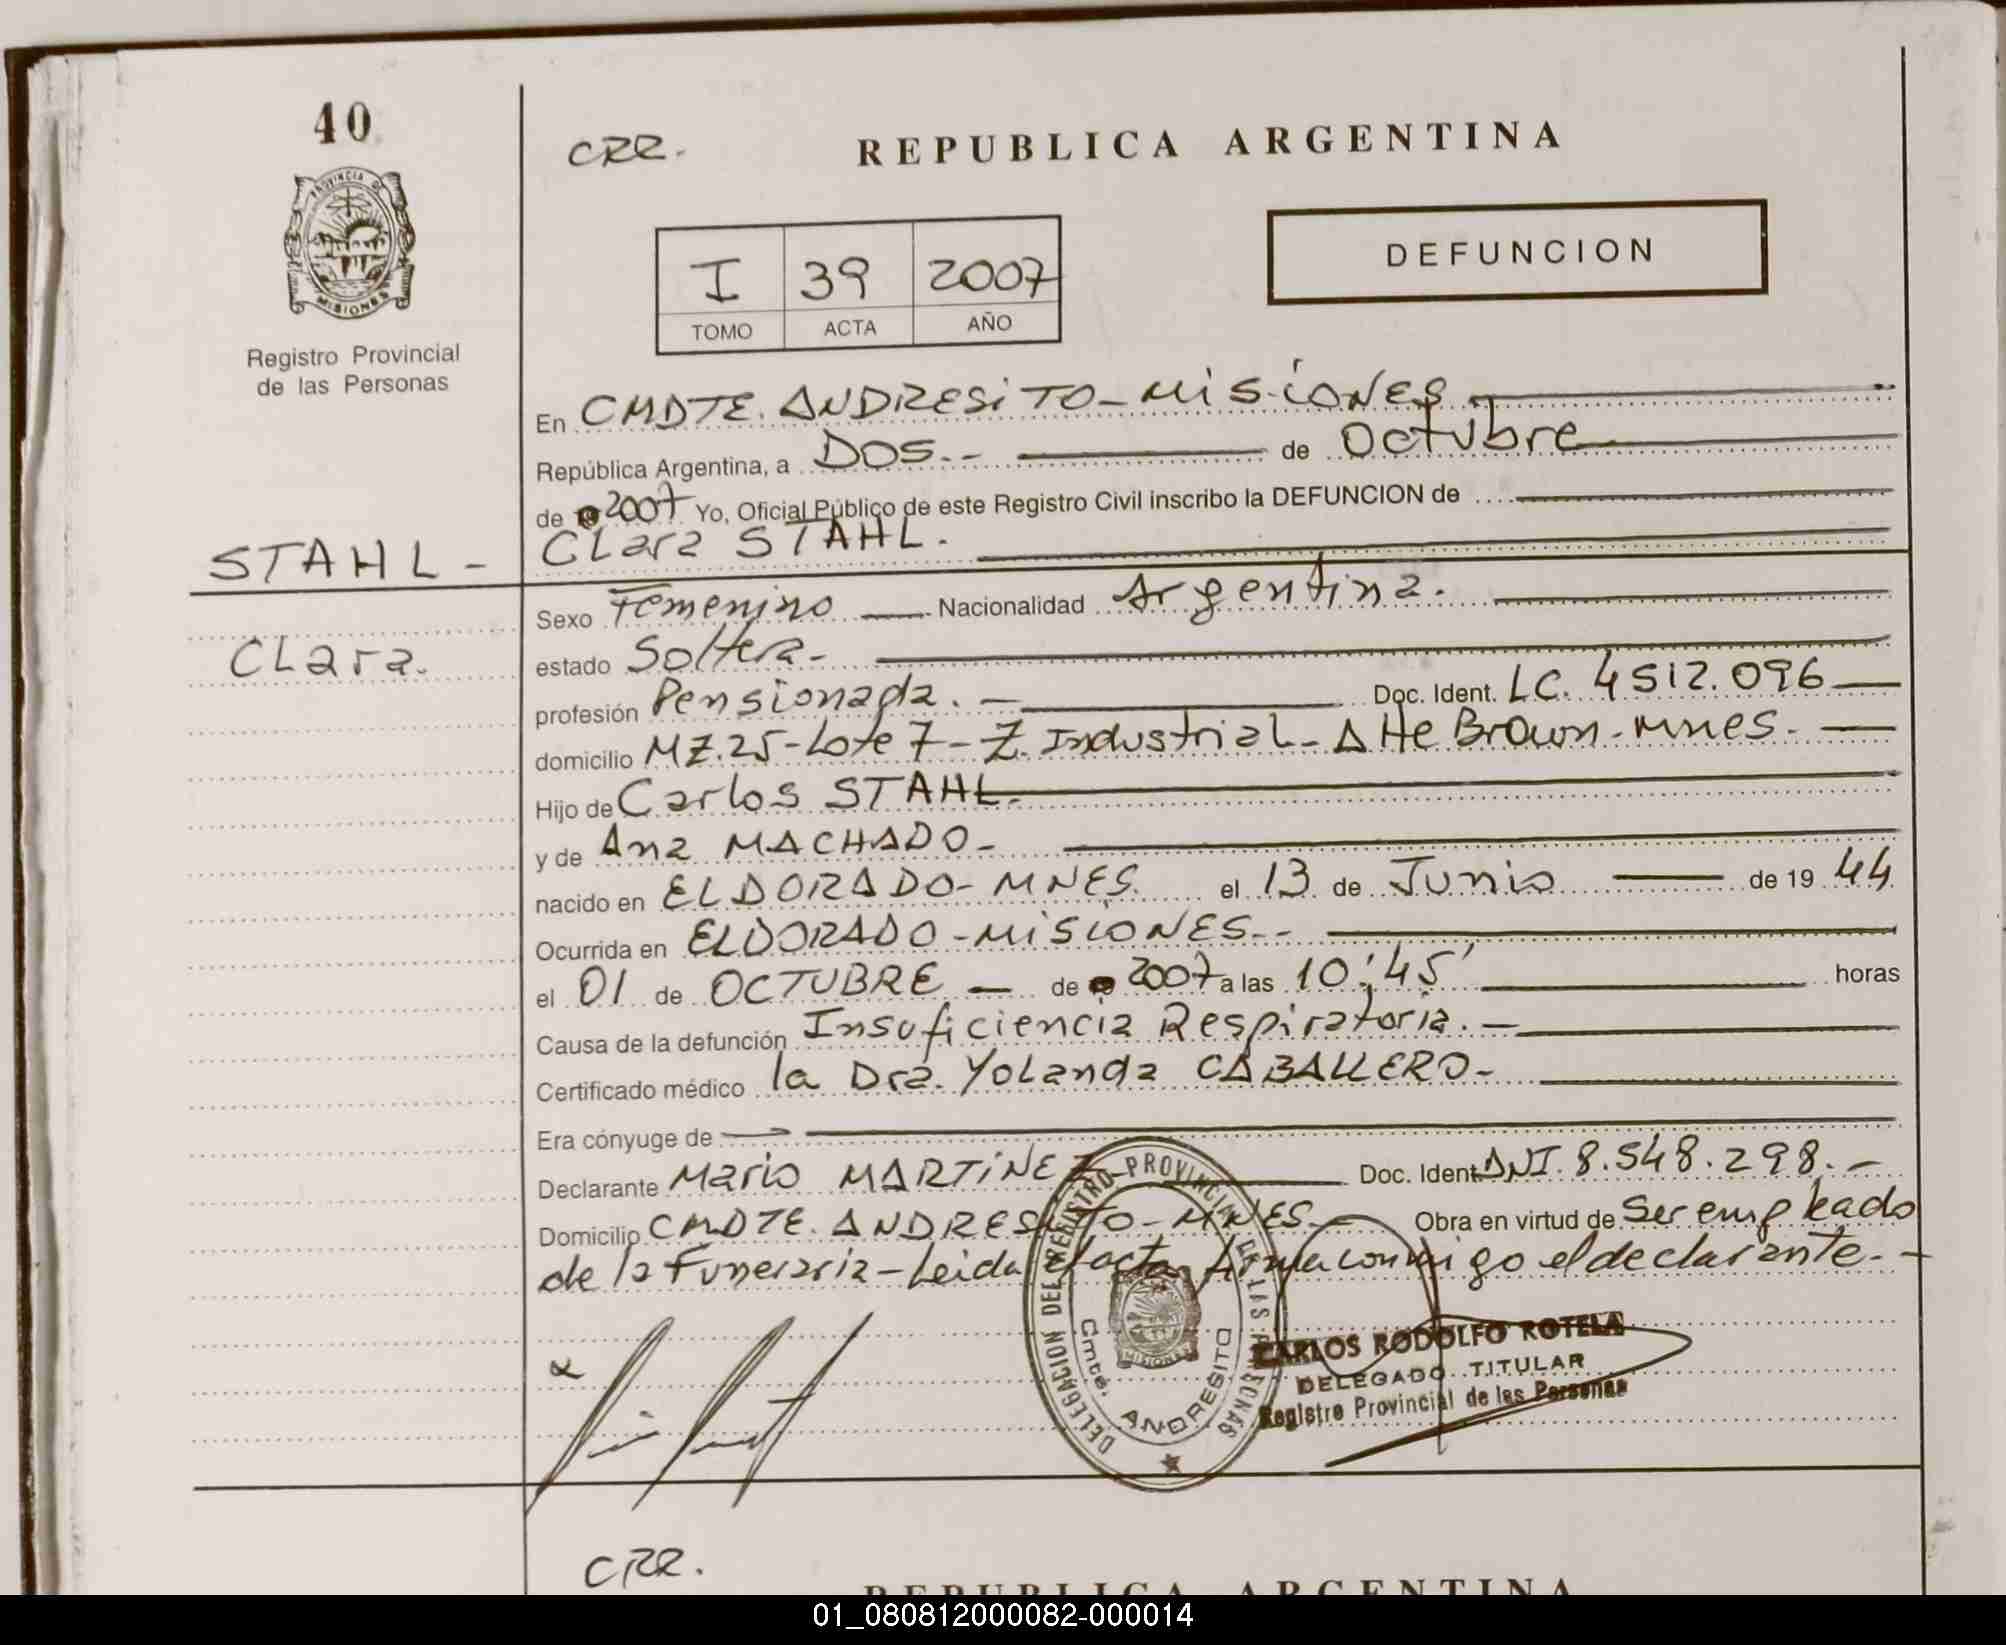 40
CRR.
REPUBLICA ARGENTINA
PROVINCIA DE MISIONES
Registro Provincial
de las Personas
I 39 2007
TOMO ACTA AÑO
DEFUNCION
En CMDTE. ANDRESITO - MISIONES
República Argentina, a DOS.- de Octubre
de 2007 Yo, Oficial Público de este Registro Civil inscribo la DEFUNCION de
STAHL - Clara STAHL.
Sexo Femenino Nacionalidad Argentina.
Clara.
estado Soltera -
profesión Pensionada. - Doc. Ident. LC. 4512.096
domicilio MZ.25 - Lote 7 - Z. Industrial - Alte Brown - Mnes. -
Hijo de Carlos STAHL.
y de Ana MACHADO -
nacido en ELDORADO - MNES. el 13 de Junio de 19 44
Ocurrida en ELDORADO - MISIONES. -
el 01 de OCTUBRE - de 2007 a las 10:45' horas
Causa de la defunción Insuficiencia Respiratoria. -
Certificado médico la Dra. Yolanda CABALLERO -
Era cónyuge de
Declarante Mario MARTINEZ Doc. Ident. DNI. 8.548.298. -
Domicilio CMDTE. ANDRESITO - MNES - Obra en virtud de Ser empleado
de la Funeraria - Leida el acta firma conmigo el declarante. -
DELEGACION DEL REGISTRO PROVINCIAL DE LAS PERSONAS
Cmte. ANDRESITO
MISIONES
CARLOS RODOLFO ROTELA
DELEGADO TITULAR
Registro Provincial de las Personas
CRR.
REPUBLICA ARGENTINA
01_080812000082-000014